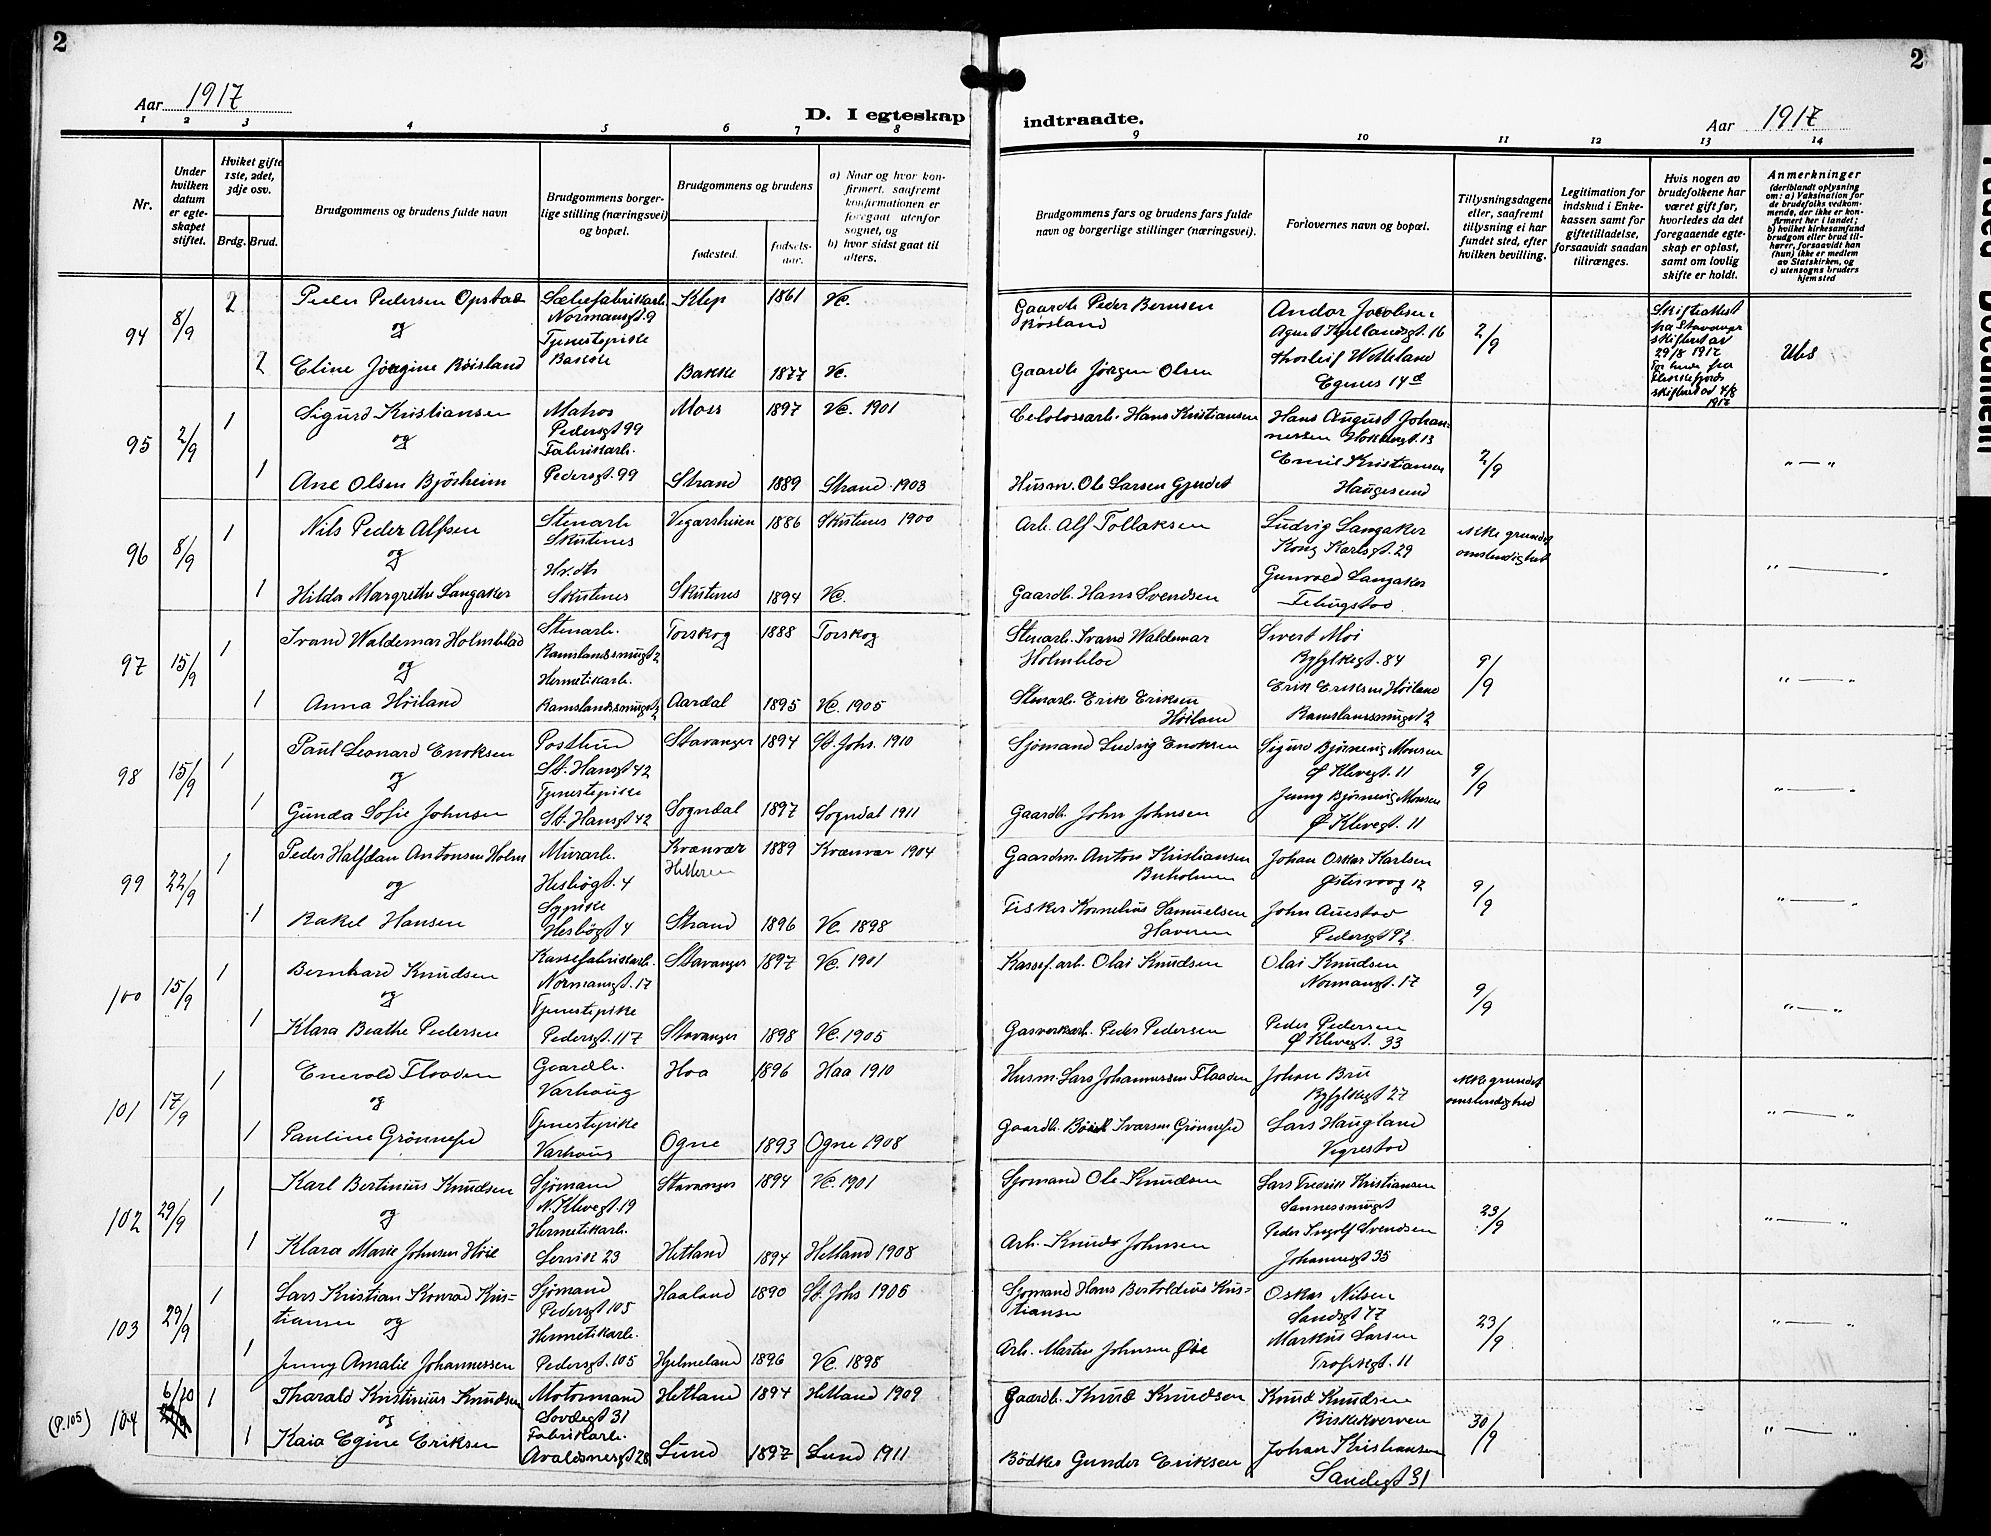 2
Aar 1917
D. I egteskap
1 2 3 4 5 6 7 8
Nr.
Under hvilken datum er egteskapet stiftet.
Hviket gifte 1ste, 2det, 3dje osv.
Brdg. Brud.
Brudgommens og brudens fulde navn
Brudgommens borgerlige stilling (næringsvei) og bopæl.
Brudgommens og brudens
fødested. fødselsaar.
a) Naar og hvor konfirmert, saafremt konfirmationen er foregaat utenfor sognet, og
b) hvor sidst gaat til alters.
94 8/9 2 Peder Pedersen Opstad Normansgt. 9 Klep 1861 Vc.
og Tjenestepike
2 Eline Jørgine Röisland Bakke Bakke 1877 Vc.
95 2/9 1 Sigurd Kristiansen Matros Moss 1897 Vc. 1901
og Pedersgt 99
Fabrikarb.
1 Ane Olsen Bjørheim Pedersgt. 99 Strand 1889 Strand 1903
96 8/9 1 Nils Peder Alfsen Stenarb. 1886 Skutenes 1900
og Skutenes
1 Hilda Margrethe Langaker Skutenes Skutenes 1894 Vc.
97 15/9 1 Ivand Waldemar Holmblad Stenarb. Torskog 1888 Torskog
og Ramslandssmuget 2
Hermetikarb.
1 Anna Höiland Ramslandssmuget 12 Aardal 1895 Vc. 1905
98 15/9 1 Paul Leonard Enoksen Postbud Stavanger 1894 St. Johs. 1910
og St. Hansgt 42
Tjenestepike
1 Gunda Sofie Johnsen St. Hansgt 42 Sogndal 1897 Sogndal 1911
99 22/9 1 Peder Halfdan Antonsen Holm Murarb. Kvænvær 1889 Kvænvær 1904
og Hesbøgt. 4 Hitteren
Sypike
1 Rakel Hansen Hesbøgt 4 Strand 1896 Vc. 1898
100 15/9 1 Bernhard Knudsen Kassefabrikarb. Stavanger 1897 Vc. 1901
og Normansgt. 17
Tjenestepike
1 Klara Beathe Pedersen Pedersgt. 117 Stavanger 1898 Vc. 1905
101 17/9 1 Enevald Flaaden Gaardb. Haa 1896 Haa 1910
og Varhaug
Tjenestepike
1 Pauline Grönnesd Varhaug Ogne 1893 Ogne 1908
102 29/9 1 Karl Bertinius Knudsen Sjømand Stavanger 1894 Vc. 1901
og N. Klevegt. 19
Hermetikarb.
1 Klara Marie Johnsen Høie 23 Hetland 1894 Hetland 1908
103 29/9 1 Lars Kristian Konrad Kristiansen Sjømand Haaland 1890 St. Johs 1905
og Pedersgt 105
Hermetikarb.
1 Jenny Amalie Johannessen Pedersgt. 105 Hjelmeland 1896 Vc. 1898
(P. 105) 104 6/10 1 Tharald Kristinius Knudsen Motormand Hetland 1894 Hetland 1909
og 31
Fabrikarb.
1 Kaia Egine Eriksen Avaldsnesgt 28 Lund 1897 Lund 1911
2
indtraadte.
Aar 1917
9 10 11 12 13 14
Brudgommens fars og brudens fars fulde navn og borgerlige stillinger (næringsvei).
Forlovernes navn og bopæl.
Tillysningsdagene eller, saafremt tillysning ei har fundet sted, efter hvilken bevilling.
Legitimation for indskud i Enkekassen samt for giftetilladelse, forsaavidt saadan tiltrænges.
Hvis nogen av brudefolkene har været gift før, hvorledes da det foregaaende egteskap er opløst, samt om lovlig skifte er holdt.
Anmerkninger
(deriblandt oplysning om: a) Vaksination for de brudefolks vedkommende, der ikke er konfirmert her i landet; b) hvilket kirkesamfund brudgom eller brud tilhører, forsaavidt han (hun) ikke er medlem av Statskirken, og c) utensogns bruders hjemsted
Gaardb. Peder Berntsen Røsland Andor Jacobsen 2/9 Skifteattest
Agnes Kjellandsgt. 16 fra Stavanger
Thorleif Wetteland skifteret av
Gaardb. Jørgen Olsen Egenes 14d 29/8 1917
skifteret av 4/8 1917
Hans Kristiansen Hans August Johannessen 2/9
Emil Kristiansen
Husm. Ole Larsen Gjudet Haugesund
Arb. Alf Tollaksen Ludvig Langaker ikke grundet
Kong Karlsgt. 29 omstendighet
Gaardb. Hans Svendsen Gunvald Langaker
Stenarb. Ivand Waldemar Sivert Moi 9/9
Holmblad Ryfylkegt. 84
Stenarb. Erik Eriksen Höiland Erik Eriksen Höiland
Ramslandssmuget 2
Sjømand Ludvig Enoksen Sigurd Bjørnevig Monsen 9/9
Ø Klevegt. 11
Gaardb. John Johnsen Jenny Bjørnevig Monsen
Ø Klevegt. 11
Gaardm. Anton Kristiansen Johan Oskar Karlsen 9/9
Østervaag 12
Fisker Kornelius Samuelsen John Auestad
Pedersgt 92
Kassef. arb. Olai Knudsen Olai Knudsen 9/9
Normansgt. 17
Gasverksarb. Peder Pedersen Peder Pedersen
Ø Klevegt. 33
Husm. Lars Johannessen Flaaden Johan Bru ikke grundet
Ryfylkegt 27 omstendighed
Gaardb. Ivarsen Grönnesd Lars Haugland
Vigrestad
Sjømand Ole Knudsen Lars Fredrik Kristiansen 23/9
Sannessmuget
Arb. Knud Johnsen Peder Ingolf Svendsen
Johannesgt 35
Sjømand Hans Bertoldius Kristiansen Oskar Nilsen 23/9
Sandsgt 77
Arb. Martin Johnsen Øie Markus Larsen
11
Gaardb. Knud Knudsen Knud Knudsen 30/9
Biskekverven
Bödker Gunder Eriksen Johan Kristiansen
Sandegt 31